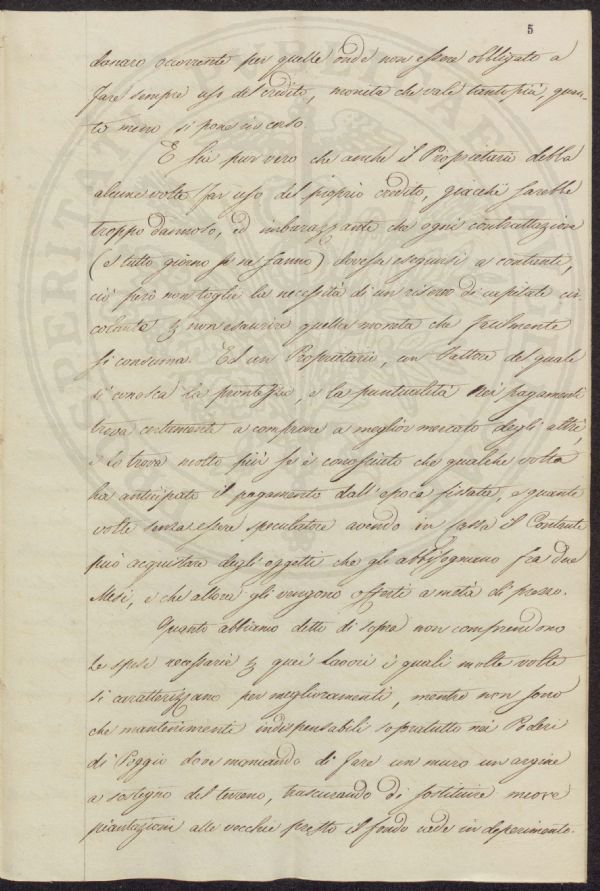 5
danaro occorrente per quelle onde non essere obbligato a
fare sempre uso del credito, moneta che vale tanto più, quan-
to meno si pone in corso.
E sia pur vero che anche il Proprietario debba
alcune volte far uso del proprio credito, giacchè sarebbe
troppo dannoso, ed imbarazzante che ogni contrattazione
(e tutto giorno se ne fanno) dovesse eseguirsi a contanti,
ciò però non toglie la necessità di un riserva di capitale cir-
colante p non esaurire quella moneta che facilmente
si consuma. Ed un Proprietario, un Fattore del quale
si conosca la prontezza, e la puntualità nei pagamenti
trova certamente a comprare a miglior mercato degli altri,
e lo trova molto più se è conosciuto che qualche volta
ha anticipato il pagamento dall'epoca fissata, e quante
volte senza essere speculatore avendo in cassa il Contante
può acquistare degli oggetti che gli abbisognano fra due
Mesi, e che allora gli vengono offerti a metà di prezzo.
Quanto abbiamo detto di sopra non comprendono
le spese necessarie p quei lavori i quali molte volte
si caratterizzano per miglioramenti, mentre non sono
che mantenimenti indispensabili sopratutto nei Poderi
di Poggio dove mancando di fare un muro un argine
a sostegno del terreno, trascurando di sostituire nuove
piantazioni alle vecchie presto il fondo cade in deperimento.